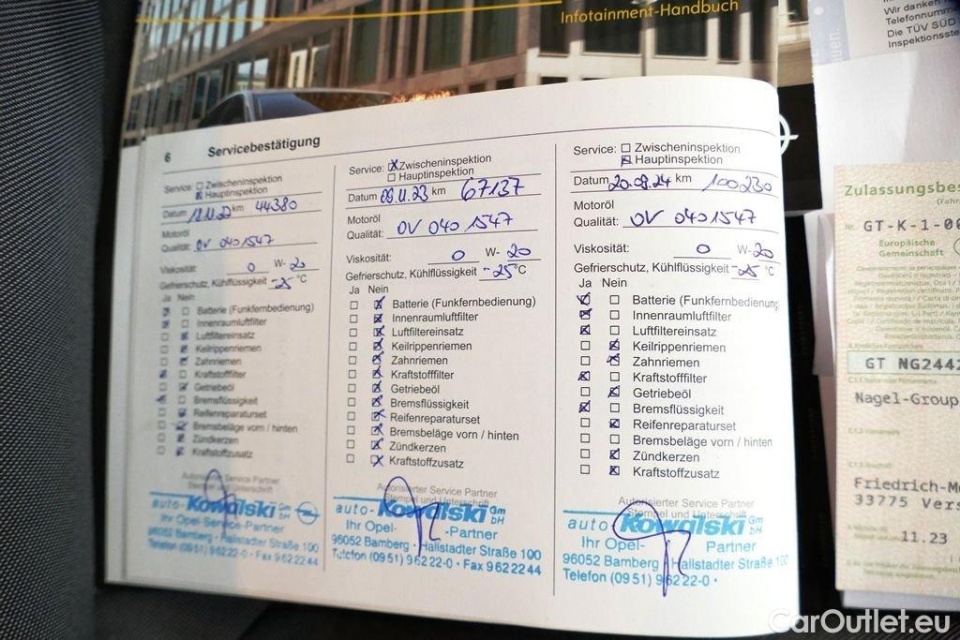 Infotainment-Handbuch
Wir danken
Telefonnum
Die TÜV SÜD
Inspektionste
6 Servicebestätigung
Service: Zwischeninspektion
Hauptinspektion
Datum 18.11.22 km 44380
Motoröl
Qualität: OV 040 1547
Viskosität: 0 W- 20
Gefrierschutz, Kühlflüssigkeit -25 °C
Ja Nein
Batterie (Funkfernbedienung)
Innenraumluftfilter
Luftfiltereinsatz
Keilrippenriemen
Zahnriemen
Kraftstofffilter
Getriebeöl
Bremsflüssigkeit
Reifenreparaturset
Bremsbeläge vorn / hinten
Zündkerzen
Kraftstoffzusatz
Autorisierter Service Partner
Stempel und Unterschrift
auto-Kowalski GmbH
Ihr Opel-Service-Partner
96052 Bamberg · Hallstadter Straße 100
Telefon (09 51) 9 62 22-0 · Fax 9 62 22 44
Service: Zwischeninspektion
Hauptinspektion
Datum 09.11.23 km 67137
Motoröl
Qualität: OV 040 1547
Viskosität: 0 W- 20
Gefrierschutz, Kühlflüssigkeit -25°C
Ja Nein
Batterie (Funkfernbedienung)
Innenraumluftfilter
Luftfiltereinsatz
Keilrippenriemen
Zahnriemen
Kraftstofffilter
Getriebeöl
Bremsflüssigkeit
Reifenreparaturset
Bremsbeläge vorn / hinten
Zündkerzen
Kraftstoffzusatz
Autorisierter Service Partner
Stempel und Unterschrift
auto-Kowalski GmbH
Ihr Opel- -Partner
96052 Bamberg · Hallstadter Straße 100
Telefon (09 51) 9 62 22-0 · Fax 9 62 22 44
Service: Zwischeninspektion
Hauptinspektion
Datum 20.08.24 km 100.230
Motoröl
Qualität: OV 040 1547
Viskosität: 0 W- 20
Gefrierschutz, Kühlflüssigkeit -25 °C
Ja Nein
Batterie (Funkfernbedienung)
Innenraumluftfilter
Luftfiltereinsatz
Keilrippenriemen
Zahnriemen
Kraftstofffilter
Getriebeöl
Bremsflüssigkeit
Reifenreparaturset
Bremsbeläge vorn / hinten
Zündkerzen
Kraftstoffzusatz
Autorisierter Service Partner
Stempel und Unterschrift
auto Kowalski GmbH
Ihr Opel- Partner
96052 Bamberg Hallstadter Straße 100
Telefon (09 51) 9 62 22-0 ·
Zulassungsbes
GT-K-1-00
Europäische
Gemeinschaft
GT NG2442
Nagel-Group
Friedrich-Me
33775 Vers
11.23
CarOutlet.eu